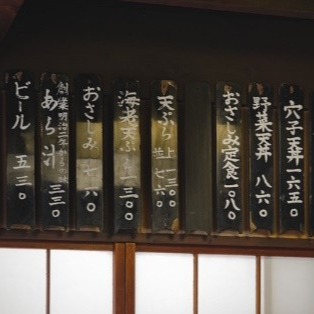 穴子天丼 一六五〇
野菜天丼 八六〇
おさしみ定食 一〇八〇
天ぷら 上 一一〇〇
並 七六〇
海老天ぷら 一三〇〇
おさしみ 七六〇
創業明治二年からの味
あら汁 三三〇
ビール 五三〇